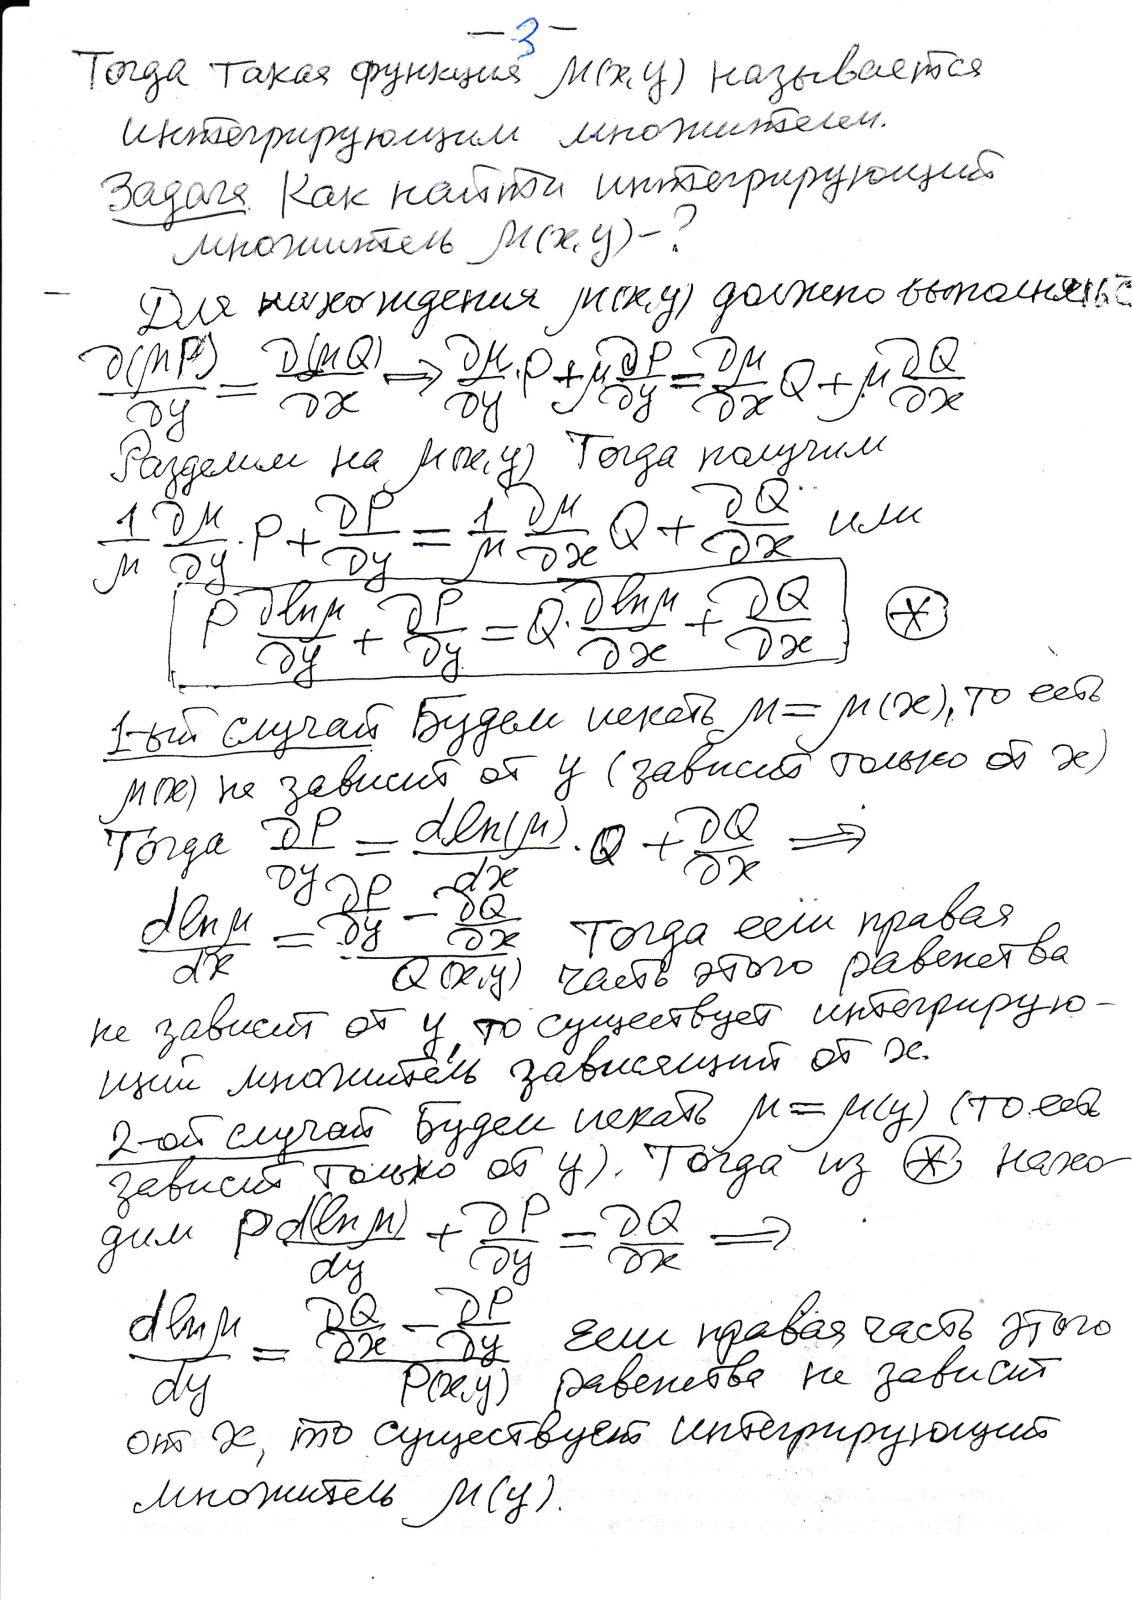 -3-
Тогда такая функция μ(x,y) называется
интегрирующим множителем.
Задача Как найти интегрирующий
множитель μ(x,y)-?
Для нахождения μ(x,y) должно выполняться
∂(μP)/∂y = ∂(μQ)/∂x ⇒ ∂μ/∂y · P + μ ∂P/∂y = ∂μ/∂x Q + μ ∂Q/∂x
Разделим на μ(x,y) Тогда получим
1/μ ∂μ/∂y · P + ∂P/∂y = 1/μ ∂μ/∂x Q + ∂Q/∂x или
P ∂lnμ/∂y + ∂P/∂y = Q · ∂lnμ/∂x + ∂Q/∂x (*)
1-ый случай Будем искать μ = μ(x), то есть
μ(x) не зависит от y (зависит только от x)
Тогда ∂P/∂y = dln(μ)/dx · Q + ∂Q/∂x ⇒
dlnμ/dx = (∂P/∂y - ∂Q/∂x)/Q(x,y) Тогда если правая
часть этого равенства
не зависит от y, то существует интегрирую-
щий множитель зависящий от x.
2-ой случай Будем искать μ = μ(y) (то есть
зависит только от y). Тогда из (*) нахо-
дим P d(lnμ)/dy + ∂P/∂y = ∂Q/∂x ⇒
dlnμ/dy = (∂Q/∂x - ∂P/∂y)/P(x,y) Если правая часть этого
равенства не зависит
от x, то существует интегрирующий
множитель μ(y).